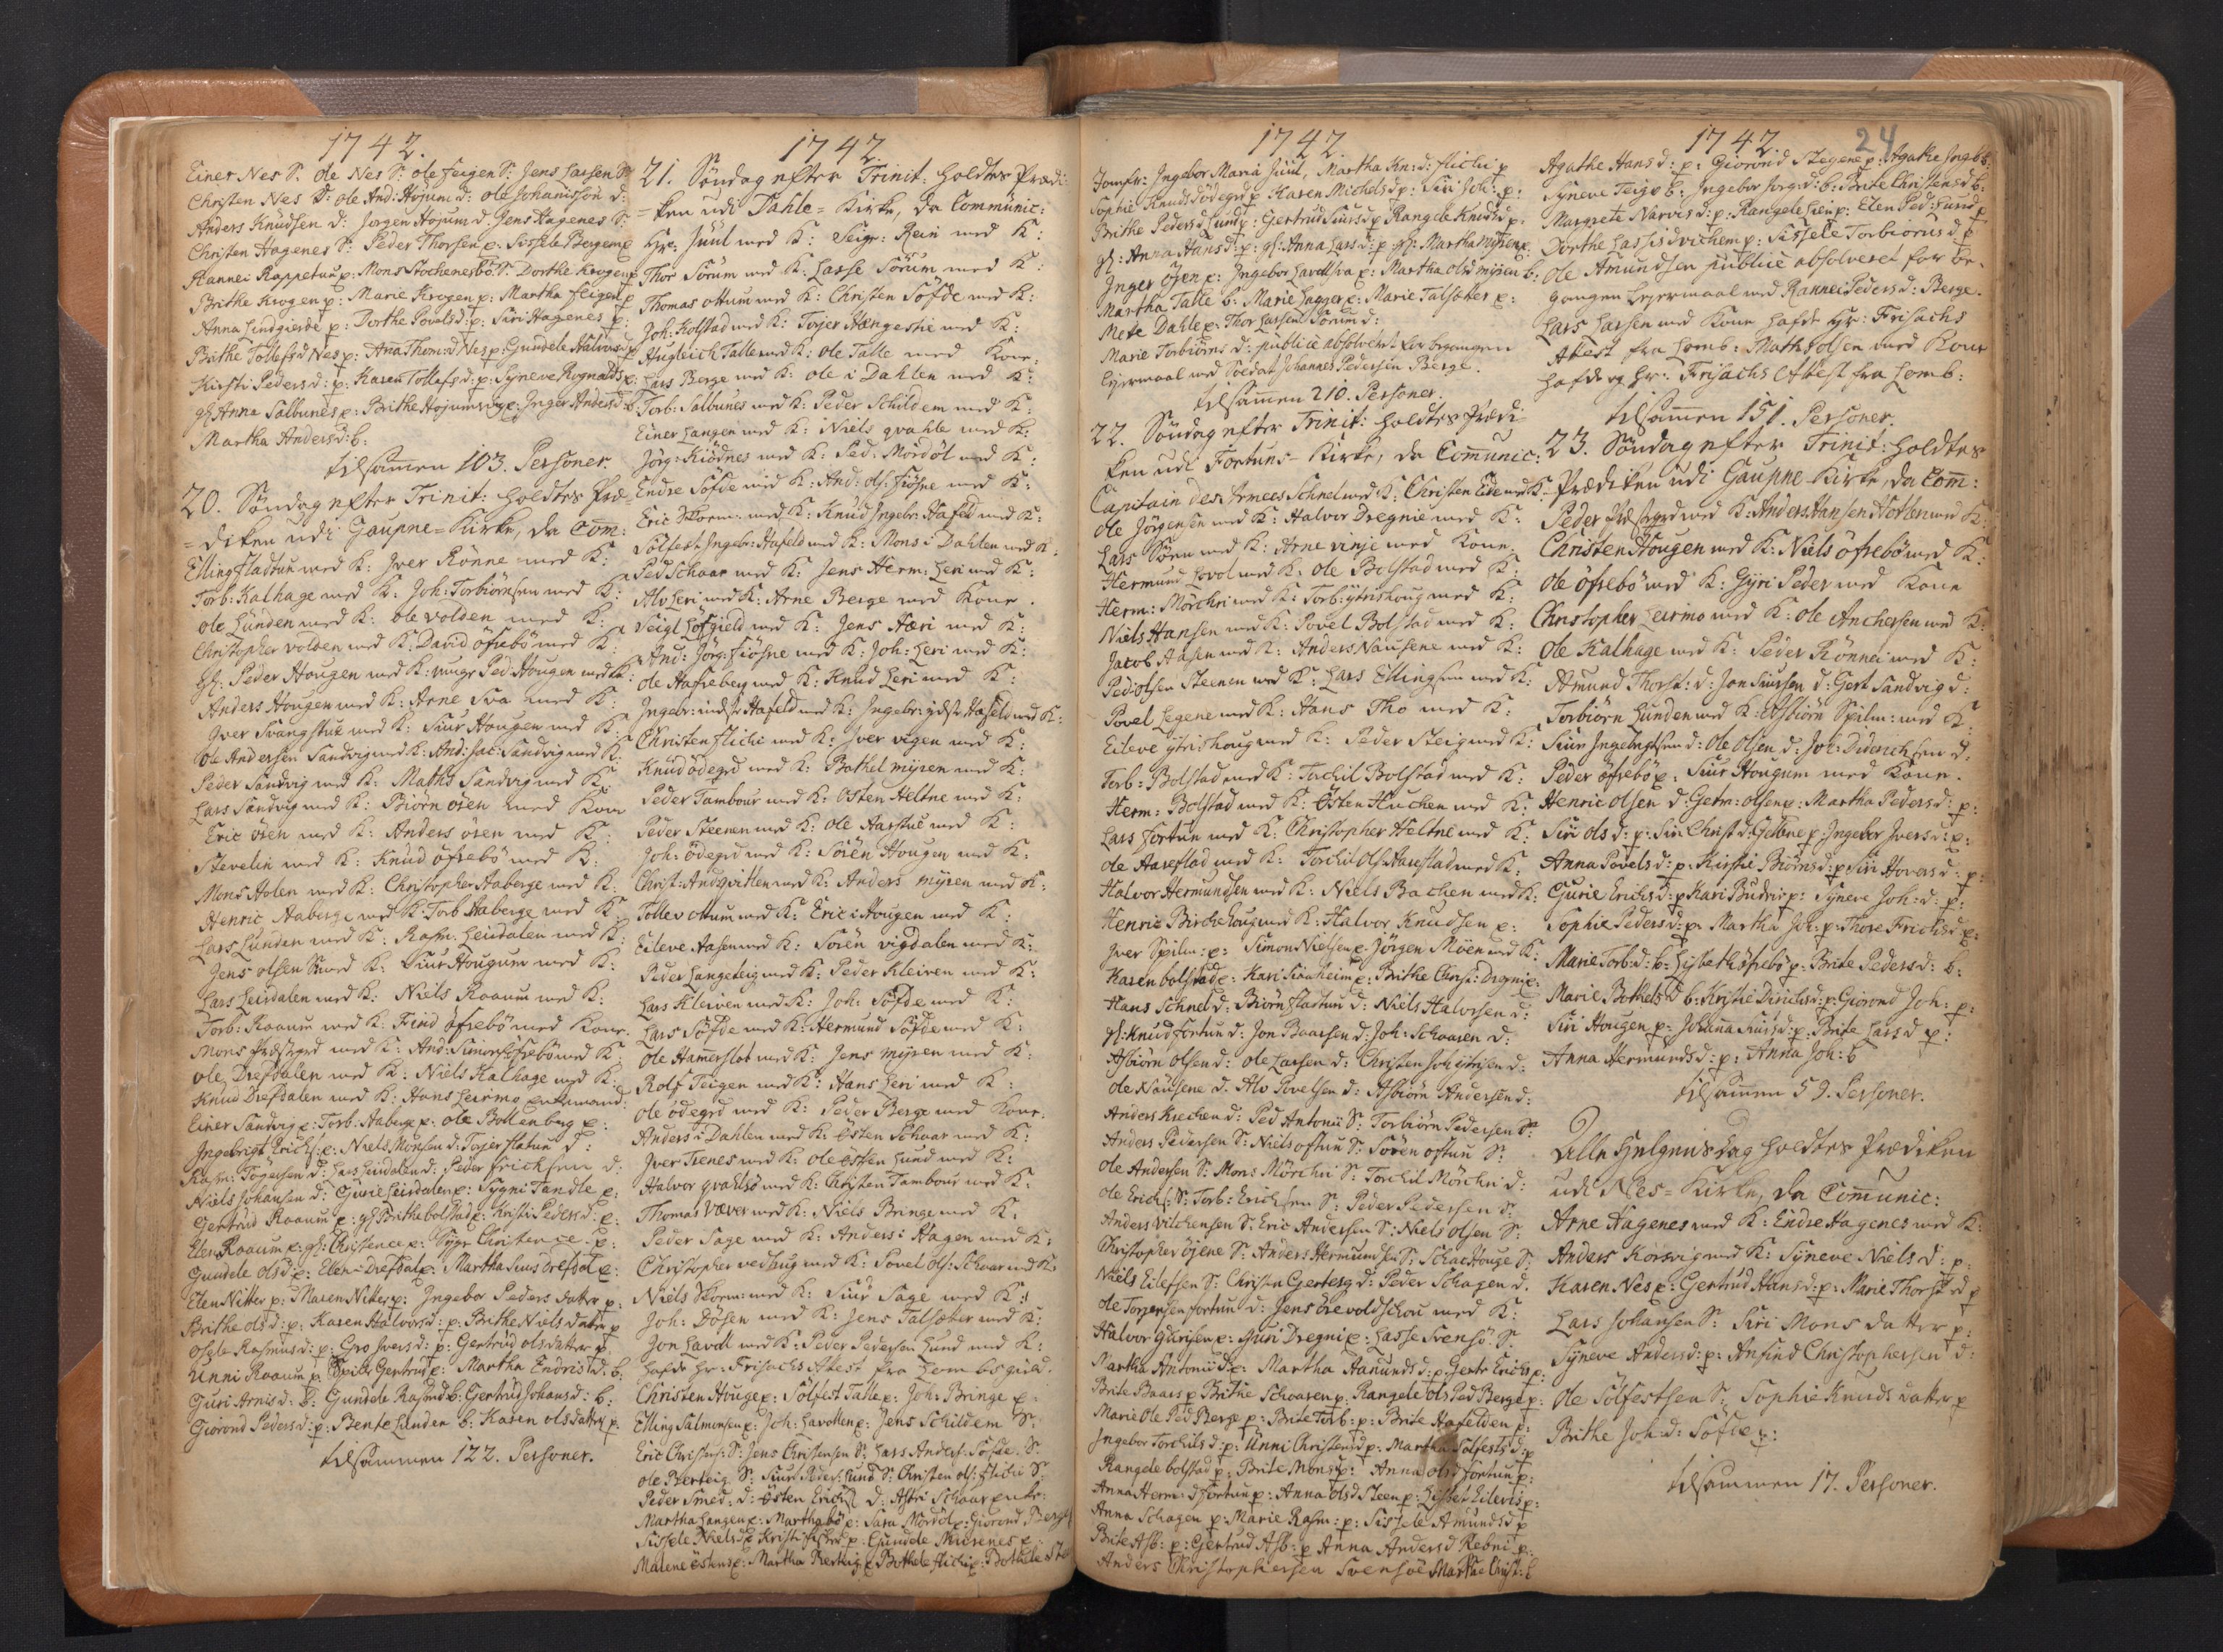 1742.
Einer Nes S: ole Nes S: ole feigen S: Jens Larsen S:
Christen Nes S: ole And: Højum d: ole Johannissøn d:
Anders Knudsen d: Jørgen Høium d: Jens Hagenes S:
Christen Hagenes S: Peder Thorsen p: Sissele Bergem p
Rannei Rappetun p: Mons Stochenesbø S: Dorthe Krogen p
Brithe Krogen p: Marie Krogen p: Martha feigen p
Anna Lindgierde p: Dorthe Povelsd: p: Siri Hagenes p:
Brithe Tollefsd Nes p: Anna Thom: d Nes p: Gundele Halvorsd p
Kirsti Pedersd: p: Karen Tollefsd: p: Syneve Rognalds p:
gl: Anna Salbunes p: Brithe Høiums p: Inger Andersd: b
Martha Andersd: b:
tilsammen 103. Personer.
20. Søndag efter Trinit: holdtes Præ-
= diken udi Gaupne = Kirke, da Com:
Elling fladtun med K: Iver Rønne med K:
Torb: Kalhage med K: Joh: Torbiørnsen med K:
ole Lunden med K: ole volden med K:
Christopher volden med K: David øfrebø med K:
gl: Peder Hougen med K: unge Ped Hougen med K:
Anders Hougen med K: Arne Sva med K:
Iver Svangstue med K: Siur Hougen med K:
ole Andersen Sandvig med K: And: Jac: Sandvig med K:
Peder Sandvig med K: Maths Sandvig med K:
Lars Sandvig med K: Biørn øsen med Kone
Eric øsen med K: Anders øsen med K:
Stevelin med K: Knud øfrebø med K:
Mons Holen med K: Christopher Aaberge med K:
Henric Aaberge med K: Torb Aaberge med K:
Lars Lunden med K: Rasm: Leirdalen med K:
Jens olsen S: med K: Siur Hougum med K:
Lars Leirdalen med K: Niels Roaum med K:
Torb: Roaum med K: Find øfrebø med Kone.
Mons Prestegrd med K: And: Simons øfrebø med K:
ole Drefdalen med K: Niels Kalhage med K:
Knud Drefdalen med K: Hans Leirmo enkemand:
Einer Sandvig p: Torb: Aaberge p: ole Bollenberg p:
Ingebrigt Erichs: p: Niels Monsen d: Torjer flatun d:
Rasm: Tøgersen d: Lars Leirdalen d: Peder Erichsen d:
Niels Johansen d: Gurie Leirdalen p: Sygni Tandle p:
Gertrud Roaum p: gl: Brithe bolstad p: Kristi Pedersd: p:
Elen Roaum p: gl: Christence p: Synge Christence: p:
Gundele olsd p: Elen i Drefdal p: Martha Siurs Drefdal p:
Elen Nitter p: Maren Nitter p: Ingebor Peders datter p:
Brithe olsd: p: Karen Halvorsd: p: Brithe Niels datter p
Osele Rasmusd: p: Gro Iversd: p: Gertrud olsdatter p:
Unni Roaum p: Gertrud p: Martha Endrisd: b:
Guri Arnisd: b: Gundele Rasmd b: Gertrud Johansd: b:
Giørond Pedersd: p: Bente Lunden b: Karen olsdatter p:
tilsammen 122. Personer.
1742.
21. Søndag efter Trinit: holdtes Prædi-
= ken udi Dahle = Kirke, da Communic:
Hr: Juul med K: Seigr: Rein med K:
Thor Sørum med K: Lasse Sørum med K:
Thomas ottum med K: Christen Søfde med K:
Joh: Kolstad med K: Torjer Hængestie med K:
Hugleich Talle med K: ole Talle med Kone.
Lars Berge med K: ole i Dahlen med K:
Torb: Salbunes med K: Peder Schildem med K:
Einer Langen med K: Niels qvahle med K:
Jørg: Kiødnes med K: Ped: Mordøl med K:
Endre Søfde med K: And: ols: fiøsne med K:
Eric Skorm: med K: Knud Ingebr: Hafeld med K:
Sølfest Ingebr: Hafeld med K: Mons i Dahlen med K:
Ped Schaar med K: Jens Herm: Leri med K:
Alv Leri med K: Arne Berge med Kone.
Veigl Løfgield med K: Jens Næri med K:
And: Jørg: fiøsne med K: Joh: Leri med K:
ole Hafreberg med K: Knud Leri med K:
Ingebr: indste Hafeld med K: Ingebr: ydste Hafeld med K:
Christen flichi med K: Iver vigen med K:
Knud ødegrd med K: Bothel myren med K:
Peder Tambour med K: Østen Heltne med K:
Peder Steenen med K: ole Aarstue med K:
Joh: ødegrd med K: Søren Hougen med K:
Christ: And: qvitlen med K: Anders myren med K:
Tollev ottum med K: Eric i Hougen med K:
Eileve Aasen med K: Søren vigdalen med K:
Peder Langeteig med K: Peder Kleiven med K:
Lars Kleiven med K: Joh: Søfde med K:
Lars Søfde med K: Hermund Søfde med K:
ole Hamerslot med K: Jens myren med K:
Rolf Teigen med K: Hans Leri med K:
ole ødegrd med K: Peder Berge med Kone.
Anders i Dahlen med K: østen Schaar med K:
Iver Trenes med K: ole østen Lund med K:
Halvor qvahlsø med K: Christen Tambour med K:
Thomas Væver med K: Niels Bringe med K:
Peder Sage med K: Anders i Hagen med K:
Christopher vedhug med K: Povel ols: Schaar med K:
Niels Skorm: med K: Siur Sage med K:
Joh: Døsen med K: Jens Talsøter med K:
Jon Lavoll med K: Peder Pedersen Lund med K:
hafde Hr: Frisachs Attest fra Lom bisgield.
Christen Houge p: Sølfest Talle p: Joh: Bringe p:
Elling Salmonsen p: Joh: Lavollen p: Jens Schildem S:
Eric Christens: S: Jens Christensen S: Lars Anders: Søfde: S:
ole Berteig S: Siur Peders: Lund S: Christen ols: flichi S:
Peder Smed: d: østen Erichs: d: Astri Schaar enke:
Martha Langen p: Martha bø p: Sara Mordøl p: Giorond Berge
Sissele Nielsd p: Kristi p: Gundele Kiørenes p
Malene østens p: Martha Berteig p: Bothele flichi p: Bothele Ste
1742.
Jomfr: Ingebor Maria Juul, Martha Kn: d: flichi p
Sophie Knuds ødegrd p Karen Michelsd p: Siri Joh: p:
Brithe Pedersd Lund p: Gertrud Siursd p Rangele Knudsd p:
gl: Anna Hansd: p: gl: Anna Larsd: p gl: Martha myren p:
Inger Øyen p: Ingebor Lavollra p: Martha olsd myren b:
Martha Talle b: Marie Hagge p: Marie Talsetter p:
Mete Dahle p: Thor Larsen Sørum d:
Marie Torbiørns d: publice absolvert for begangen
leyermaal med Soldat Johannes Pedersen Berge.
tilsammen 210. Personer.
22. Søndag efter Trinit: holdtes Prædi-
ken udi Fortuns-Kirke, da Communic:
Capitain des Armees Schnel med K: Christen Eide med K:
ole Jørgensen med K: Halvor Dregnie med K:
Lars Søren med K: Arne vinje med Kone.
Hermund Hovol med K: ole Bolstad med K:
Herm: Mørchri med K: Torb: ytrishoug med K:
Niels Hansen med K: Povel Bolstad med K:
Jacob Aasen med K: Anders Nausene med K:
Ped: olsen Steenen med K: Lars Ellingsen med K:
Povel Legene med K: Hans Tho med K:
Eileve ytrishoug med K: Peder Steig med K:
Torb: Bolstad med K: Torchil Bolstad med K:
Herm: Bolstad med K: Østen Huchen med K:
Lars Fortun med K: Christopher Heltne med K:
ole Harestad med K: Torchil ols: Harestad med K:
Halvor Hermundsen med K: Niels Bachen med K:
Henric Birchehoug med K: Halvor Knudsen p:
Iver Spilm: p: Simon Nielsen p: Jørgen Moen med K:
Karen bolstad p: Kari Siønheim p: Brithe Christ: Dregni p:
Hans Schnel d: Biørn fladtun d: Niels Halvorsen d:
gl: Knud Fortun d: Jon Baarsen d: Joh: Schaaren d:
Asbiørn olsen d: ole Larsen d: Christen Joh: d:
ole Nausene d: Alv Povelsen d: Asbiørn Andersen d:
Anders Krechen d: Ped Antonii S: Torbiørn Pedersen S:
Anders Pedersen S: Niels oftun S: Søren oftun S:
ole Andersen S: Mons Mørchri S: Torchil Mørchri d:
ole Erichs: S: Torb: Erichsen S: Peder Pedersen d:
Anders vilchensen S: Eric Andersen S: Niels olsen S:
Christopher øjene S: Anders Hermundsen S: Schae Houge S:
Niels Eilefsen S: Christen Gertesg d: Peder Schagen d.
ole Torgersen fortun d: Jens øvevold schou med K:
Halvor gurisen p: Guri Dregni p: Lasse Svensø S:
Martha Antoniid p: Martha Hamunds d: p: Gertr Erichs p:
Brite Baars p Brithe Schaaren p: Rangele ols Ped Berge p:
Marie Ole Ped Berge p: Brite Torb: p: Brite Hafelden p:
Ingebor Torchilsd: p: Unni Christensd p: Martha Sølfests d: p
Rangele bolstad p: Brite Mons p: Anna olsd fortun p:
Anna Herm: d fortun p: Anna olsd Steen p: Lisbet Eilevs p:
Anna Schagen p: Marie Rasm: p: Sissele Amundsd p
Brite Asb: p: Gertrud Asb: p Anna Andersd Rebni p:
Anders Christophersen Svensøe Martha Christ: b
1742. 24
Agathe Hansd: p: Giorond Stegene p: Agathe Ingeb:
Syneve Teige b: Ingebor Jørg: d: b: Brite Christensd b:
Margrete Narvisd: p: Rangele Lien p: Elen Ped: Lund p
Dorthe Lassisd vichem p: Sissele Torbiørns d p
ole Amundsen publice absolveret for be-
gangen Leyermaal med Rannei Pedersd: Berge.
Lars Larsen med Kone hafde Hr: Frisachs
Attest fra Lomb: Maths olsen med Kone
hafde og Hr: Frisachs Attest fra Lomb:
tilsammen 151. Personer.
23. Søndag efter Trinit: holdtes
Prædiken udi Gaupne-Kirke, da Com:
Peder Prestegrd med K: Anders Hansen Hotlen med K:
Christen Hougen med K: Niels øfrebø med K:
ole øfrebø med K: Gyri Peder med Kone
Christopher Leirmo med K: ole Anchersen med K:
ole Kalhage med K: Peder Rønnei med K:
Amund Thorst: d: Jon Siursen d: Gert Sandvig d:
Torbiørn Lunden med K: Asbiørn Spilm: med K:
Siur Ingebrigtsen d: ole olsen d: Joh: Diderichsen d:
Peder øfrebø p: Siur Hougum med Kone.
Henric olsen d: Getm: olsen p: Martha Pedersd: p:
Siri ols d: p: Siri Christ d: Getone p: Ingebor Iversd: p:
Anna Povelsd: p: Kirstie Biørnsd: p: Siri Hovers d: p:
Gurie Erichsd: p Kari Budri p: Syneve Joh: d: p:
Sophie Pedersd: p: Martha Joh: p: Thore Frichsd p:
Marie Torb: d: b: Lisbeth øfrebø p: Brite Pedersd: b:
Marie Bothels d b: Kirstie Dirichsd: p: Giorond Joh: p:
Siri Hougen p: Johanna Siursd: p: Brite Larsd p:
Anna Hermundsd: p: Anna Joh: b
tilsammen 59. Personer.
Alle Helgens dag holdtes Prædiken
udi Nes-Kirke, da Communic:
Arne Hagenes med K: Endre Hagenes med K:
Anders Korsvig med K: Syneve Niels d: p:
Karen Nes p: Gertrud Hans d: p: Marie Thorst: d p
Lars Johansen S: Siri Mons datter p:
Syneve Andersd: p: Anfind Christophersen d:
ole Sølfestsen S: Sophie Knuds datter p
Brithe Joh: d: Søfde p:
tilsammen 17. Personer.